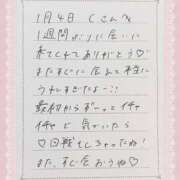 1月4日 Cさんへ
1週間ぶりに会いに
来てくれてありがとう♡
またすぐに会えて本当に
うれしすぎたよーっ!
最初からずーっとイチャ
イチャ
♡回戦もしちゃったね!
また、すぐ会おうね♡